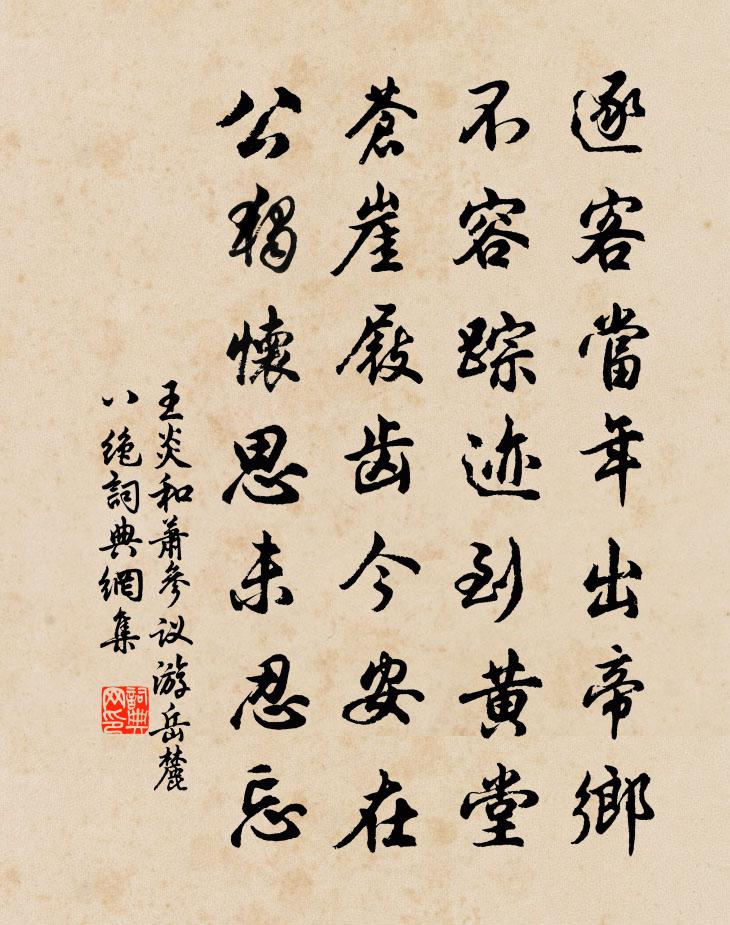 逐客當年出帝鄉
不容踪迹到黃堂
蒼崖屐齒今安在
公獨懷思未忍忘
王炎和蕭參议游岳麓
八绝詞典網集
詞典
网印